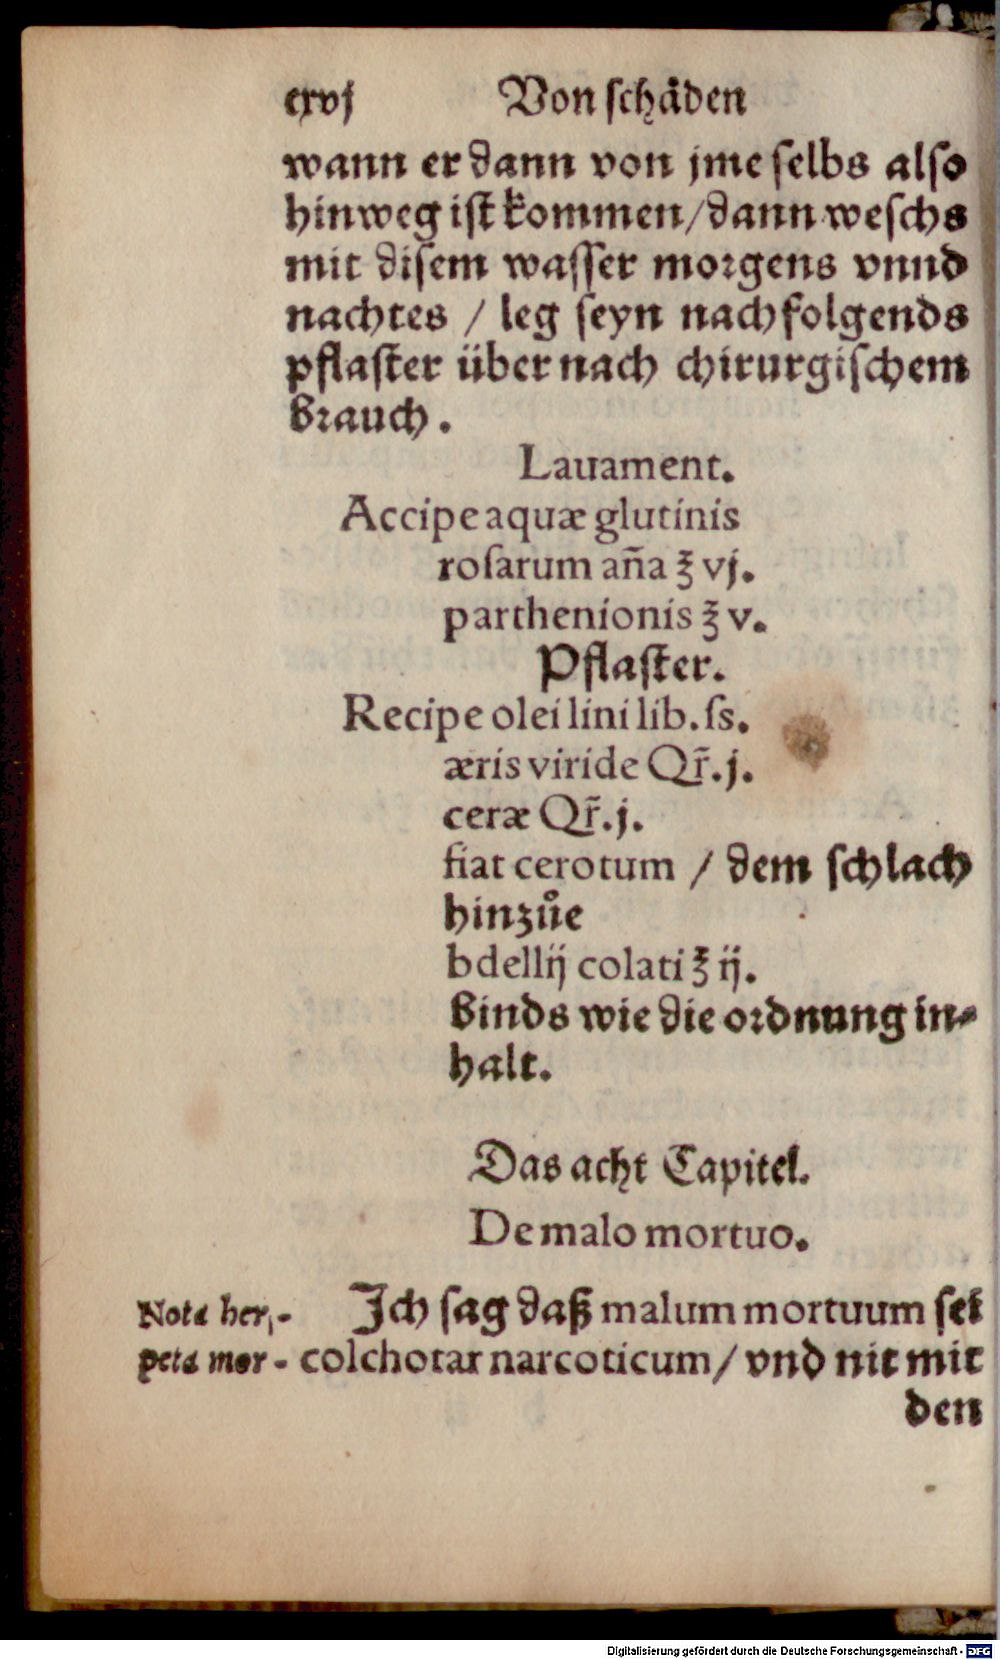 cxvj Von schäden
wann er dann von jme selbs also
hinweg ist kommen/dann weschs
mit disem wasser morgens vnnd
nachtes / leg seyn nachfolgends
pflaster über nach chirurgischem
brauch.
Lauament.
Accipe aquæ glutinis
rosarum añа ℥ vj.
parthenionis ℥ v.
Pflaster.
Recipe olei lini lib. ſs.
æris viride Qr̃. j.
ceræ Qr̃. j.
fiat cerotum / dem schlach
hinzůe
bdellij colati ℥ ij.
binds wie die ordnung in-
halt.
Das acht Capitel.
De malo mortuo.
Nota her-
peta mor-
Ich sag daß malum mortuum sei
colchotar narcoticum/ vnd nit mit
den
Digitalisierung gefördert durch die Deutsche Forschungsgemeinschaft - DFG